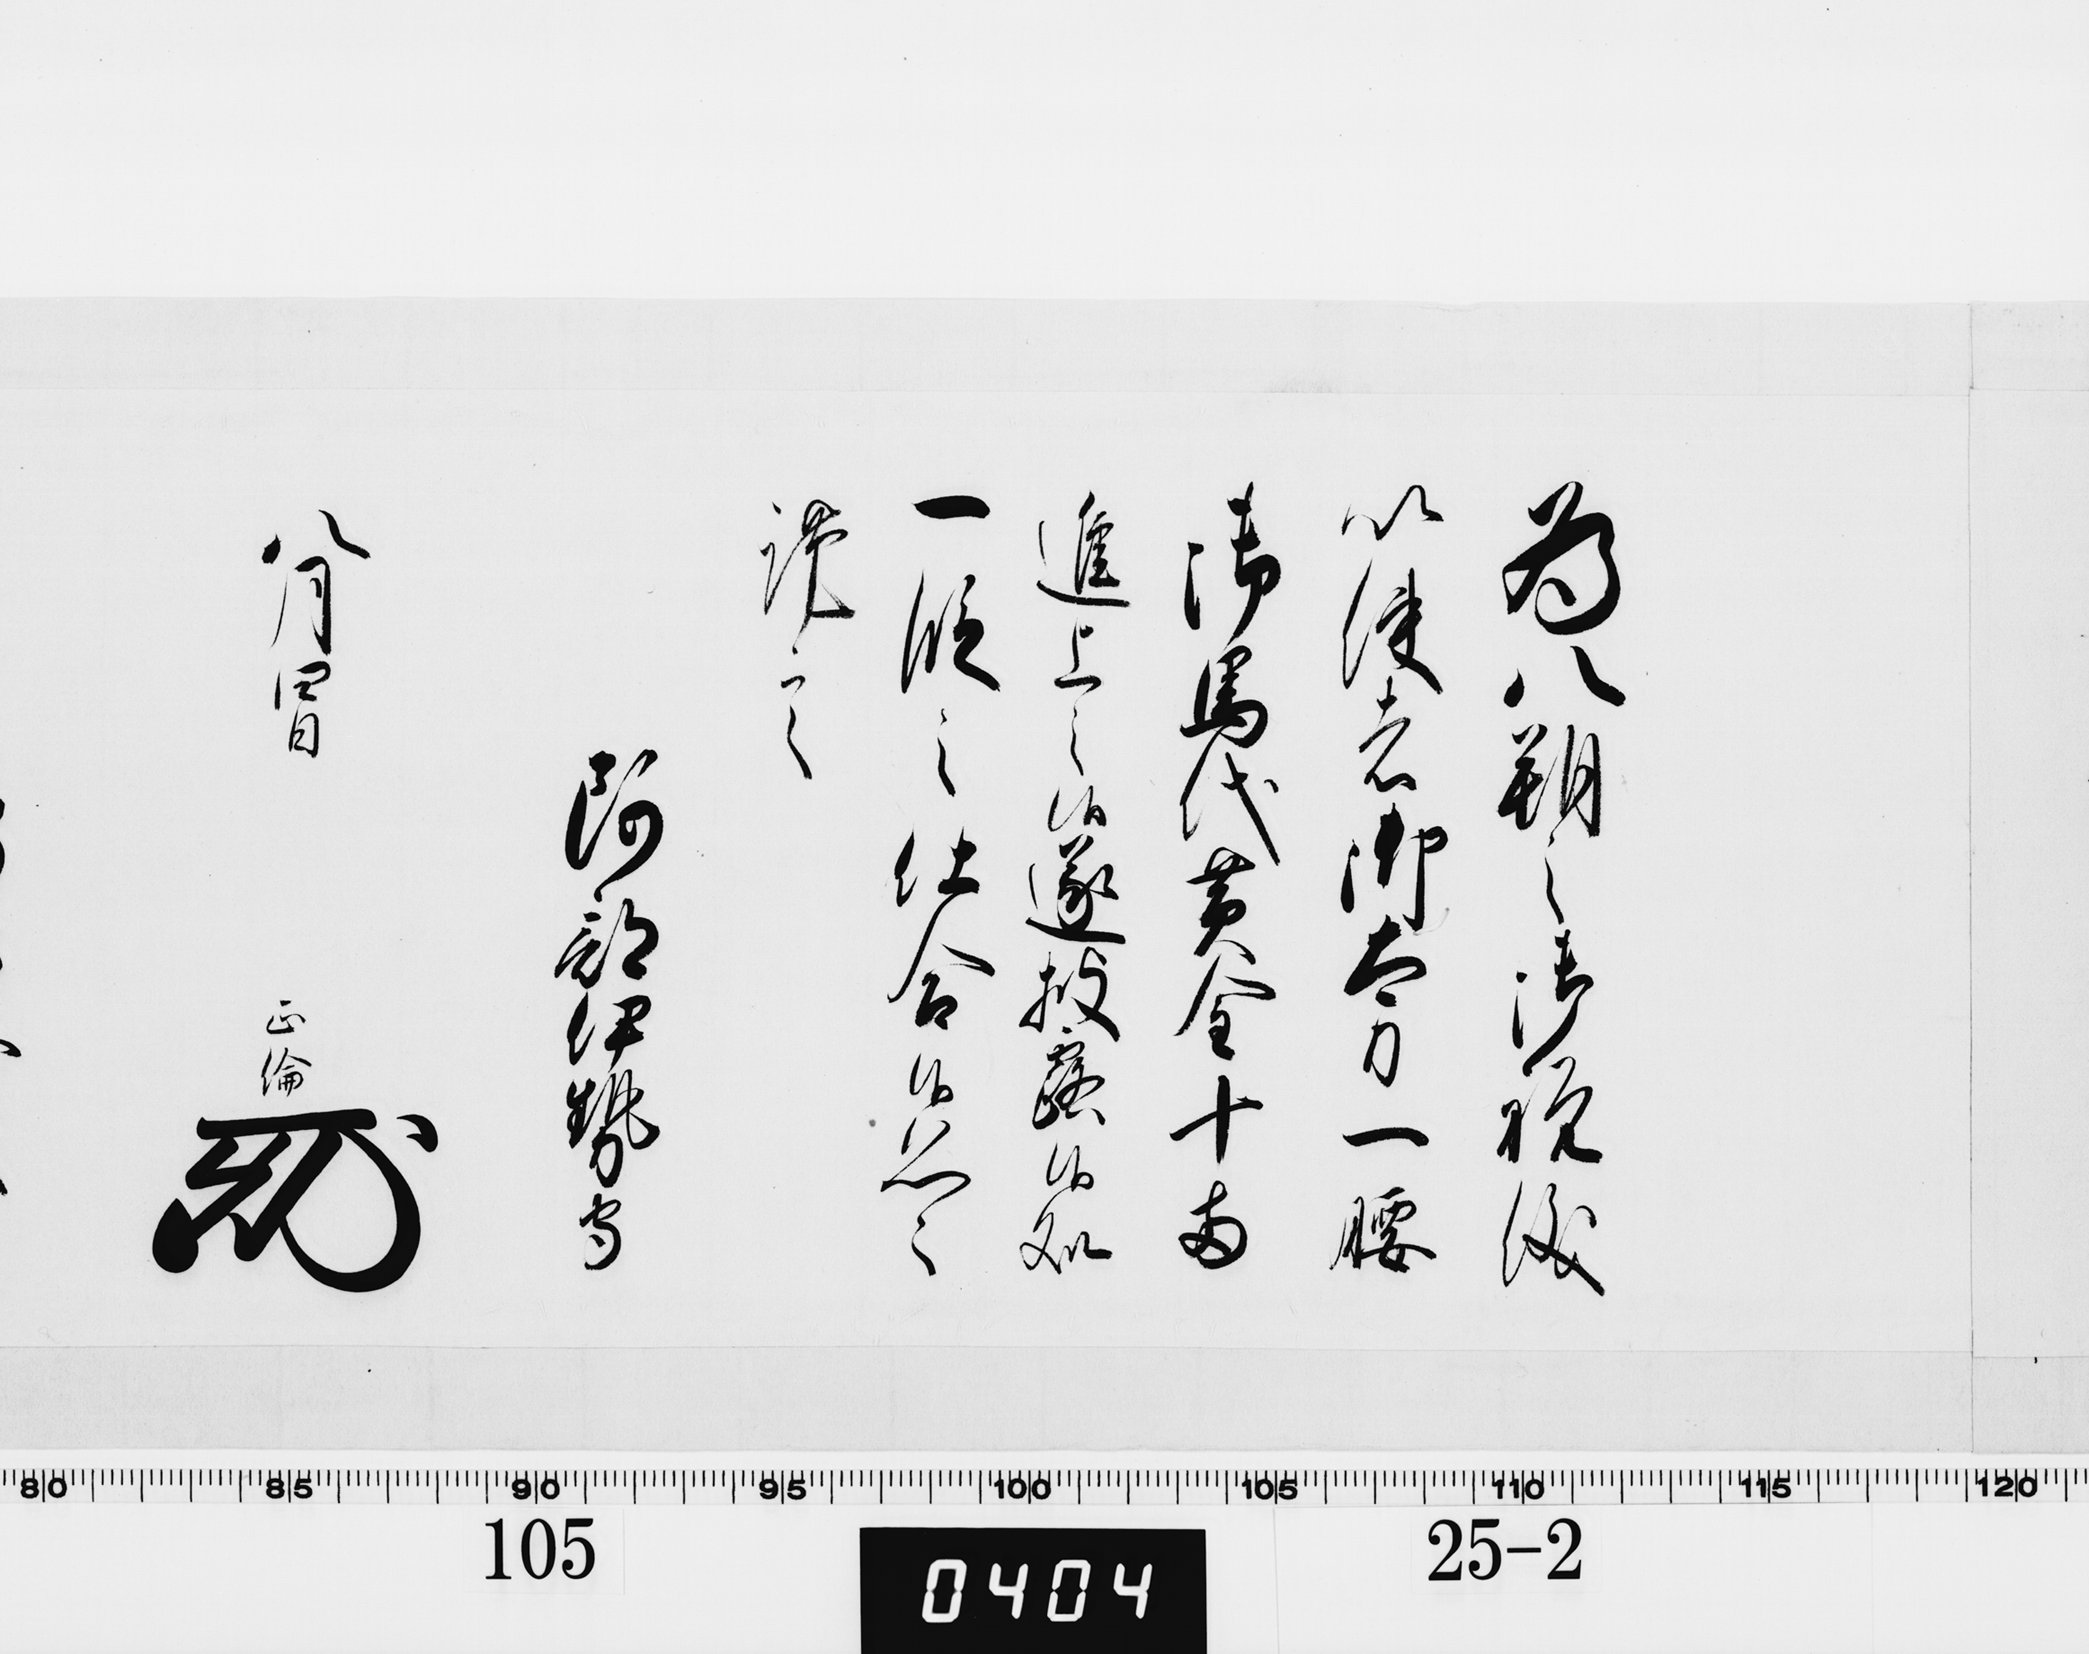 為八朔之御祝儀
以使者御太刀一腰
御馬代黄金十両
進上之候遂披露候処
一段之仕合候恐々
謹言
阿部伊勢守
八月四日
正倫
80 85 90 95 100 105 110 115 120
105
0404
25-2